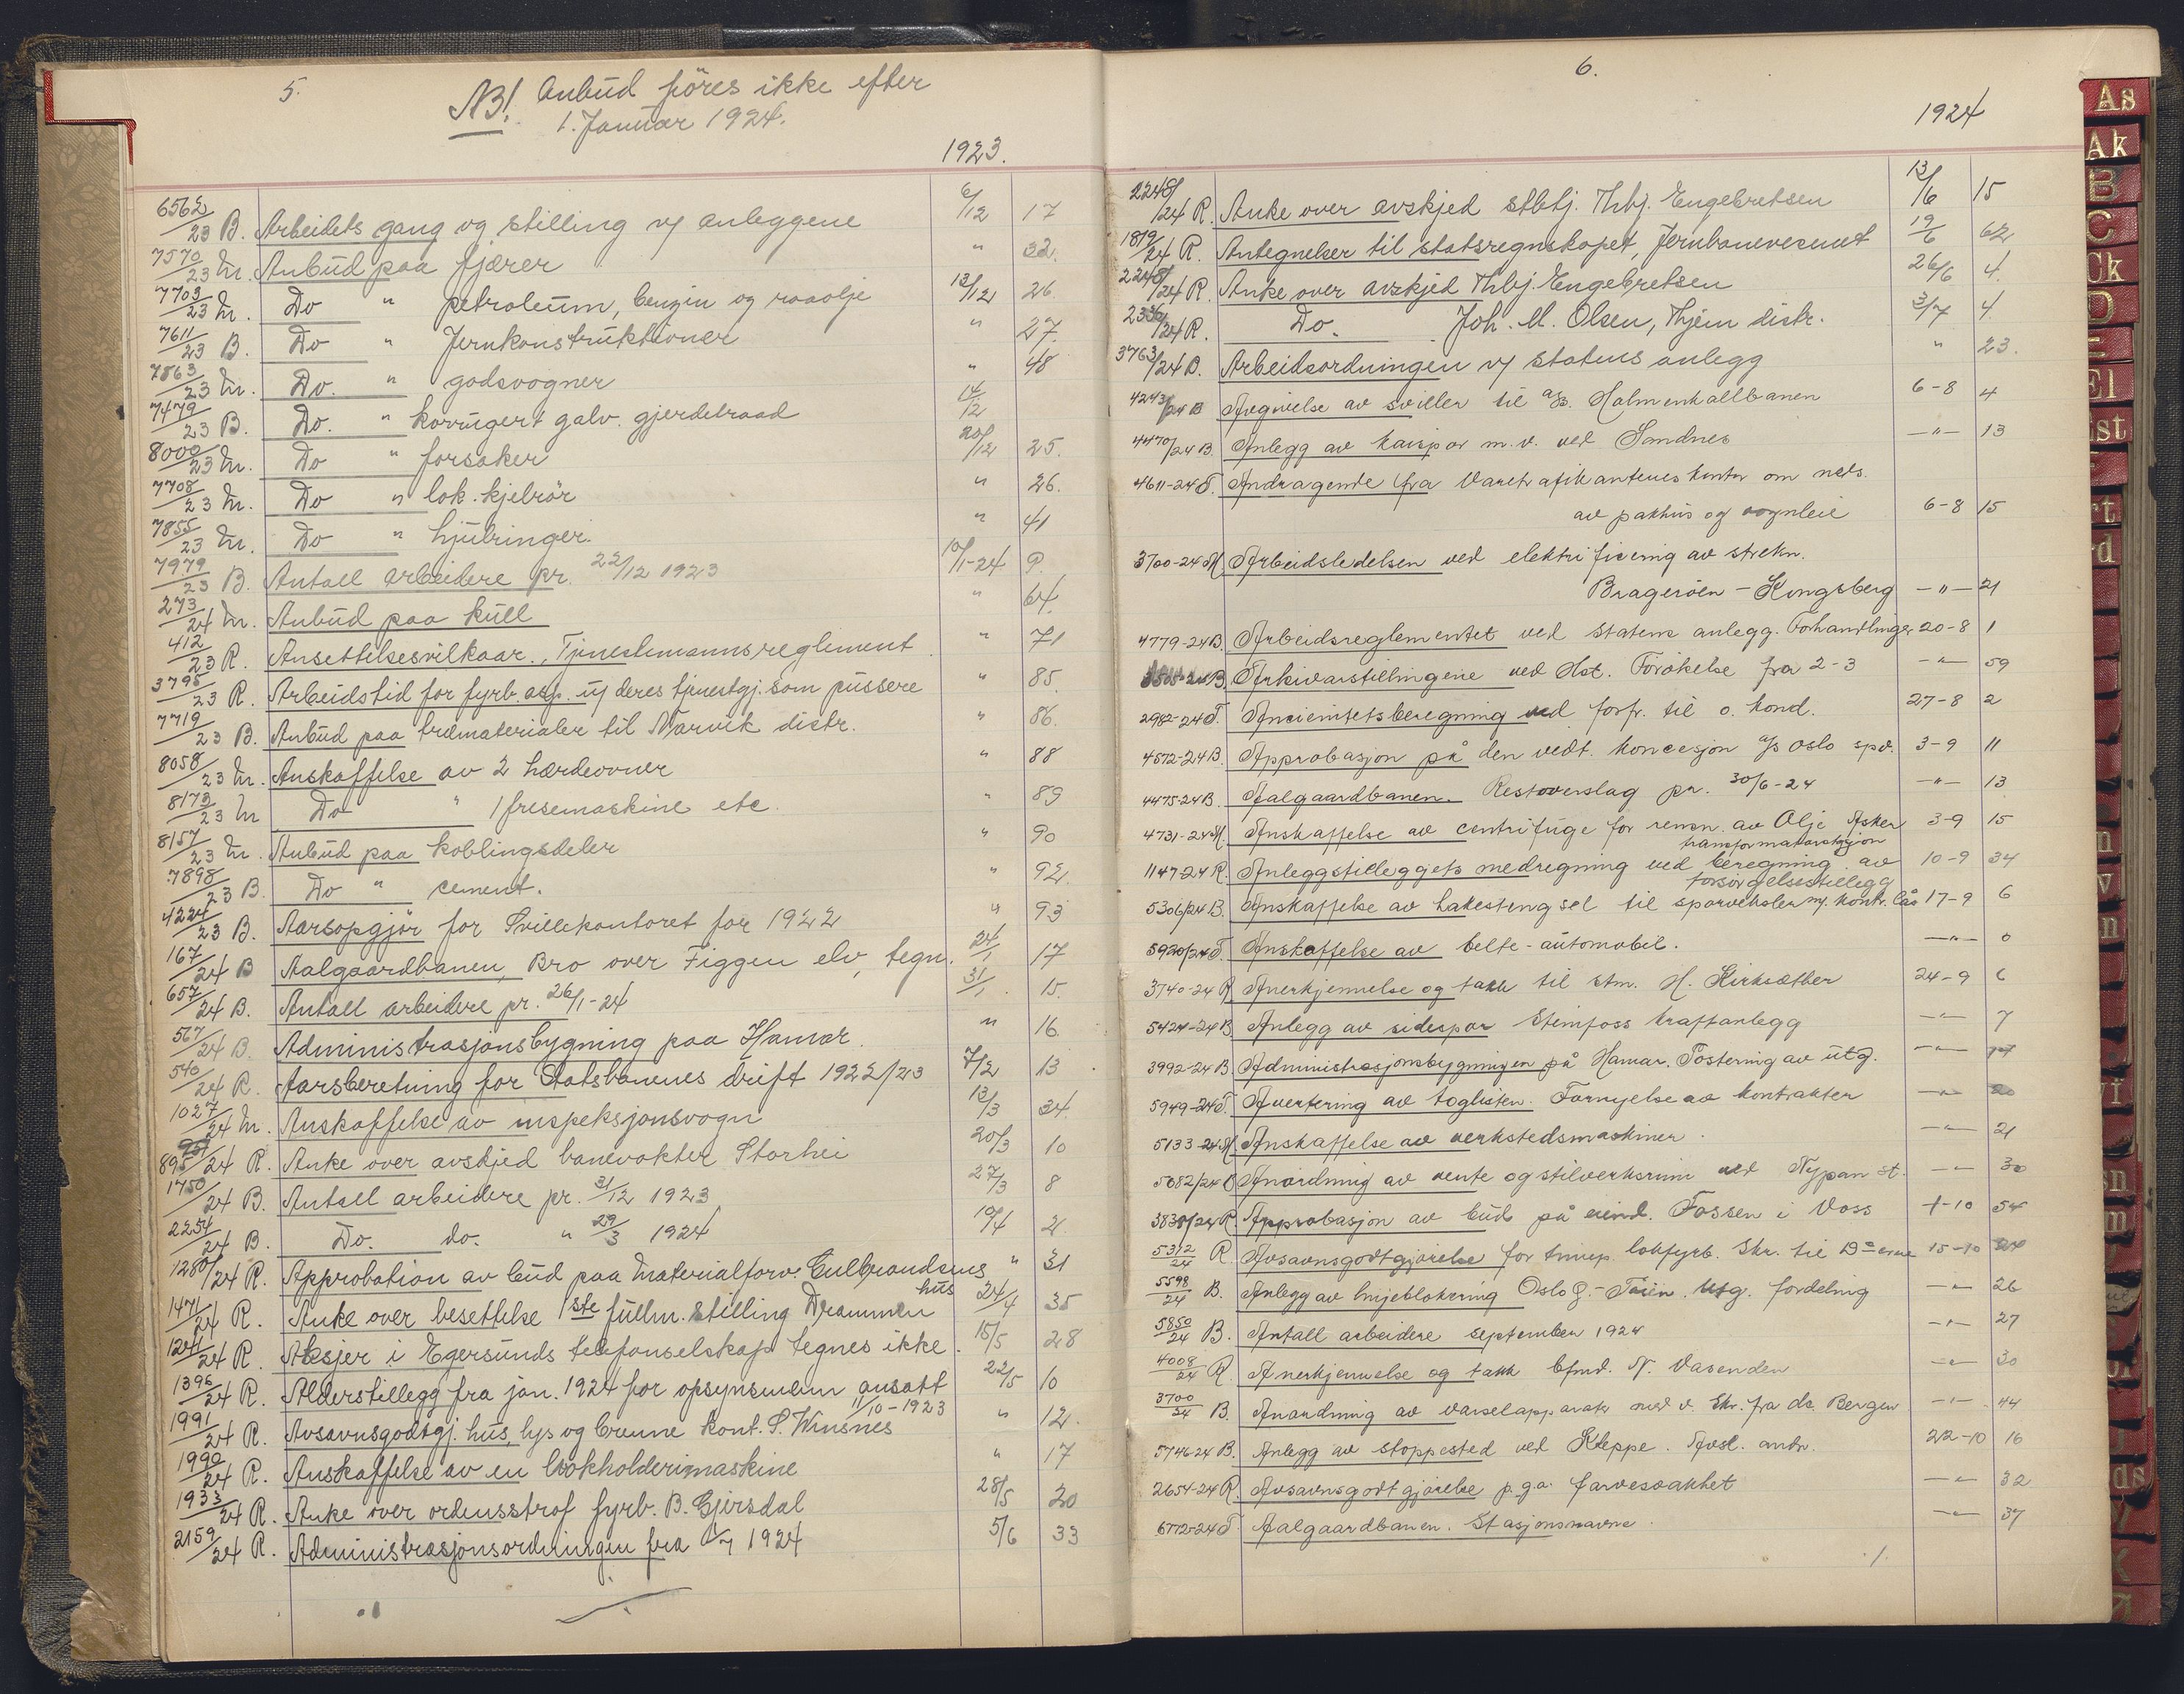 5.
NB! Anbud föres ikke efter
1. Januar 1924.
1923.
6562/23 B. Arbeidets gang og stilling v/ anleggene 6/12 17
7570/23 M. Anbud paa fjærer " 32.
7703/23 M. Do " petroleum, benzin og raaolje 13/12 26
7611/23 B. Do " Jernkonstruktioner " 27.
7863/23 M. Do. " godsvogner " 48
7479/23 B. Do. " korrugert galv. gjerdetraad 14/12
8000/23 M. Do " forsoker 20/12 25.
7708/23 M. Do " lok. kjelrör " 26.
7855/23 M. Do " hjulringer. " 41
7979/23 B. Antall arbeidere pr. 22/12 1923 10/1-24 9.
273/24 M. Anbud paa kull " 64.
412/23 R. Ansettelsesvilkaar., Tjenestemannsreglement " 71
3795/23 R. Arbeidstid for fyrb. asp. v/ deres tjenestgj. som pussere " 85.
7719/23 B. Anbud paa trematerialer til Narvik distr. " 86.
8058/23 M. Anskaffelse av 2 hærdeovner " 88
8173/23 M Do " 1 fresemaskine etc. " 89
8157/23 M. Anbud paa koblingsdeler " 90
7898/23 B. Do " cement. " 92.
4224/23 B. Aarsopgjör for Svillekontoret for 1922 " 93
167/24 B Aalgaardbanen, Bro over Figgen elv, tegn. 24/1 17
657/24 B. Antall arbeidere pr. 26/1-24 31/1 15.
567/24 B. Administrasjonsbygning paa Hamar. " 16
540/24 R. Aarsberetning for Statsbanenes drift 1922/23 7/2 13
1027/24 M. Anskaffelse av inspeksjonsvogn 13/3 34.
895/24 R. Anke over avskjed banevokter Storhei 20/3 10
1750/24 B. Antall arbeidere pr. 31/12 1923 27/3 8
2254/24 B. Do. do. " 29/3 1924 10/4 2.
1280/24 R. Approbation av bud paa Materialforv. Gulbrandsens hus " 31
1471/24 R. Anke over besettelse 1ste fullm. stilling Drammen 24/4 35
1241/24 R. Aksjer i Egersunds telefonselskap tegnes ikke. 15/5 28
1396/24 R. Alderstillegg fra jan. 1924 for opsynsmenn ansatt 11/10-1923 22/5 10
1991/24 R. Avsavnsgodtgj. hus, lys og brenne kont. S. Winsnes " 12.
1990/24 R. Anskaffelse av en bokholderimaskine " 17
1933/24 R. Anke over ordensstraf fyrb. B. Gjersdal 28/5 20
2159/24 R. Administrasjonsordningen fra 1/7 1924 5/6 33
6.
1924
2248/24 R. Anke over avskjed stbtj. Thbj. Engebretsen 13/6 15
1819/24 R. Antegnelser til statsregnskapet, Jernbanevesenet 19/6 62
2248/24 R. Anke over avskjed Thbj. Engebretsen 26/6 4.
2336/24 R. Do. Joh. M. Olsen, Thjem distr. 3/7 4.
3763/24 B. Arbeidsordningen v/ statens anlegg " 23.
4243/24 B Avgivelse av sviller til a/s. Holmenkollbanen 6-8 4
4470/24 B. Anlegg av kaispor m.v. ved Sandnes —"— 13
4611-24 T. Andragende fra Varetrafikantenes kontor om neds.
av pakhus og vognleie 6-8 15
3700-24 M Arbeidsledelsen ved elektrificering av strekn.
Brageröen - Kongsberg —"— 21
4779-24 B. Arbeidsreglementet ved statens anlegg. Forhandlinger 20-8 1
Arkivarstillingene ved Hst. Forökelse fra 2-3 —"— 59
2982-24 T. Ancienitetsberegning ved forfr. til o. kond. 27-8 2
4572-24 B. Approbasjon på den vedt. koncesjon a/s Oslo spv. 3-9 11
4475-24 B. Aalgaardbanen. Restoverslag pr. 30/6-24 —"— 13
4731-24 M. Anskaffelse av centrifuge for rensn. av Olje Asker transformatorstasjon 3-9 15
1147-24 R. Anleggstilleggets medregning ved beregning av forsörgelsestillegg 10-9 34
5306/24 B. Anskaffelse av lakestengsel til sporveksler m/ kontr. lås 17-9 6
5920/24 T. Anskaffelse av belte-automobil. —"— 0
3740-24 R Anerkjennelse og takk til stm. H. Kirksæther 24-9 6
5424-24 B Anlegg av sidespor Stemfoss kraftanlegg —"— 7
3992-24 B Administrasjonsbygningen på Hamar. Postering av utg. —"—
5949-24 T. Avertering av toglisten. Fornyelse av kontrakter —"—
5133-24 M. Anskaffelse av verkstedsmaskiner. —"— 21
5682/24 B Anordning av vente og stilverksrum ved Nypan st. —"— 30
3838/24 R. Approbasjon av bud på eiend. Fossen i Voss 1-10 54
5312/24 R Avsavnsgodtgjörelse for lokfyrb. Skr. til 15-10 24
5598/24 B. Anlegg av linjeblokering Oslo Ø.-Töien. Utg. fordeling —"— 26
5850/24 B. Antall arbeidere september 1924 —"— 27
4008/24 R. Anerkjennelse og takk bfmd. N. Vasenden —"— 30
3700/24 B. Anordning av varselapparater med v. Skr. fra dc. Bergen —"— 44
5746-24 B. Anlegg av stoppested ved Kleppe. Avsl. andr. 22-10 16
2654-24 R. Avsavnsgodtgjörelse p.ga. farvesvakhet —"— 32
6772-24 T. Aalgaardbanen. Stasjonsnavne. —"— 37
As
Ak
B
C
Ck
D
El